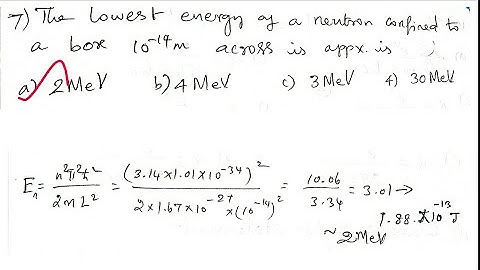 7) The lowest energy of a neutron confined to
a box 10⁻¹⁴m across is appx. is
a) 2MeV b) 4MeV c) 3MeV 4) 30MeV
E₁ = n²π²ħ² / 2mL² = (3.14×1.01×10⁻³⁴)² / 2×1.67×10⁻²⁷×(10⁻¹⁴)² = 10.06 / 3.34 = 3.01 →
1.88.×10⁻¹³ J
~2MeV